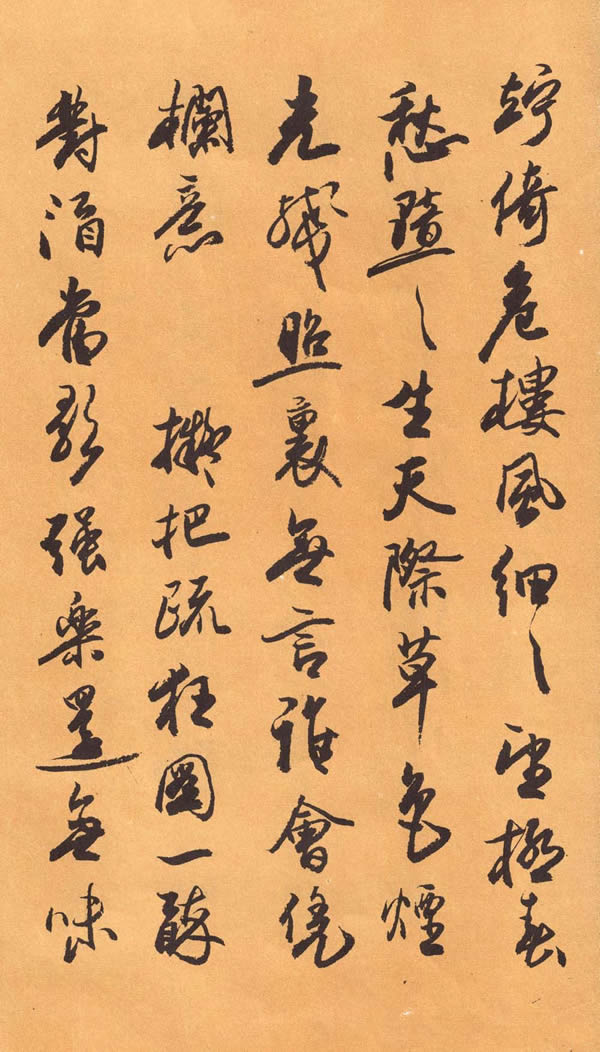 竚倚危樓風細々望極春
愁黯々生天際草色煙
光殘照裏無言誰會凭
欄意 擬把疏狂圖一醉
對酒當歌強樂還無味